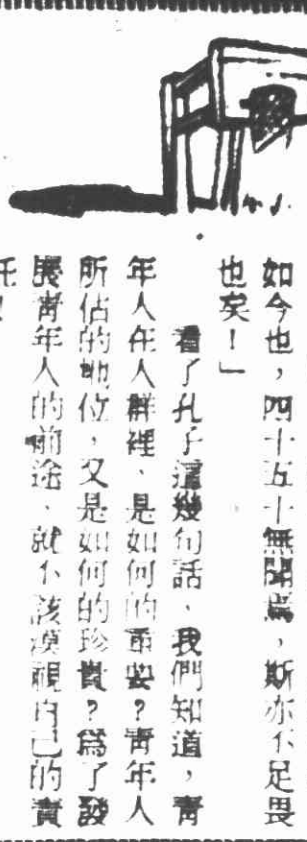 如今也，四十五十無聞焉，斯亦不足畏
也矣！」
看了孔子這幾句話、我們知道，青
年人在人群裡、是如何的重要？青年人
所佔的地位，又是如何的珍貴？爲了發
展青年人的前途、就不該漠視自己的責
任！